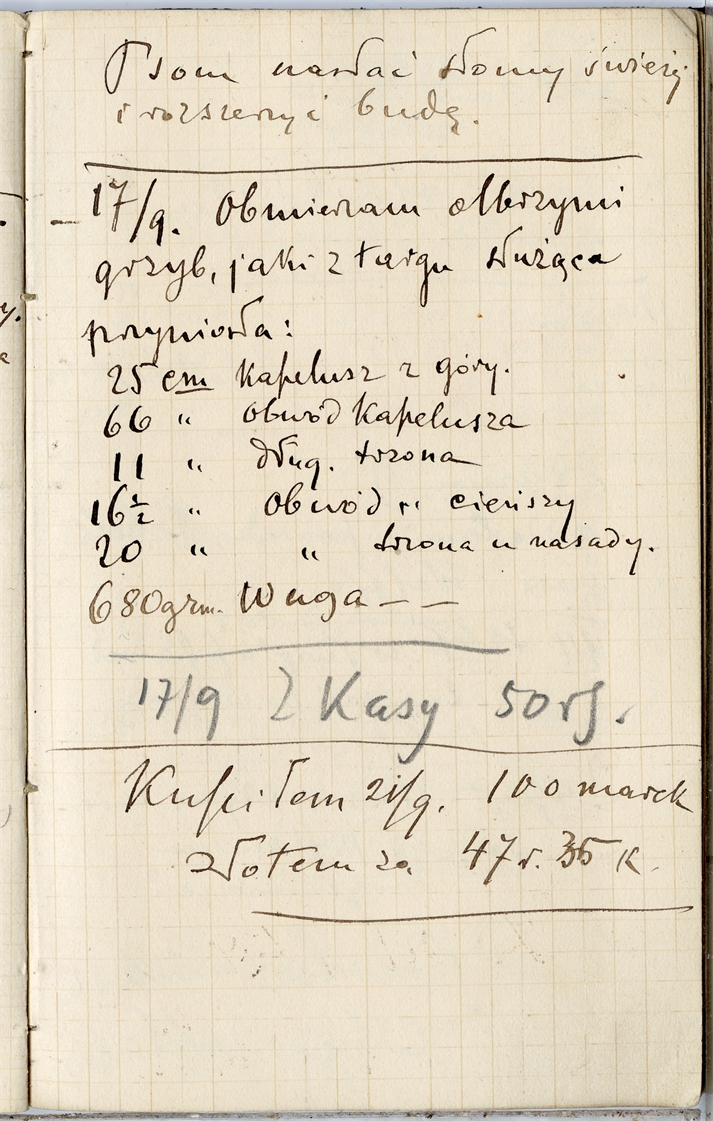 Psom nasłać słomy świeżej
i rozszerzyć budę.
17/9. Obmierzam olbrzymi
grzyb, jaki z targu służąca
przyniosła:
25 cm kapelusz z góry.
66 " obwód kapelusza
11 " dług. trzona
16½ " obwód " cieńszy
20 " " trzona u nasady.
680 grm. Waga — —
17/9 Z Kasy 50 rs.
Kupiłem 21/9. 100 marek
złotem za 47 r. 35 k.